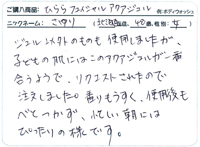 ご購入商品: ひららアスィートルアクアジェル
例:ボディウォッシュ
ニックネーム: さゆり (北海道, 40歳, 性別: 女)
ジェル以外のものも使用しましたが、
子どもの肌にはこのアクアジェルが一番
合うようで、リクエストされたので
注文しました。香りもうすく、使用後も
べとつかず、忙しい朝には
ぴったりの様です。